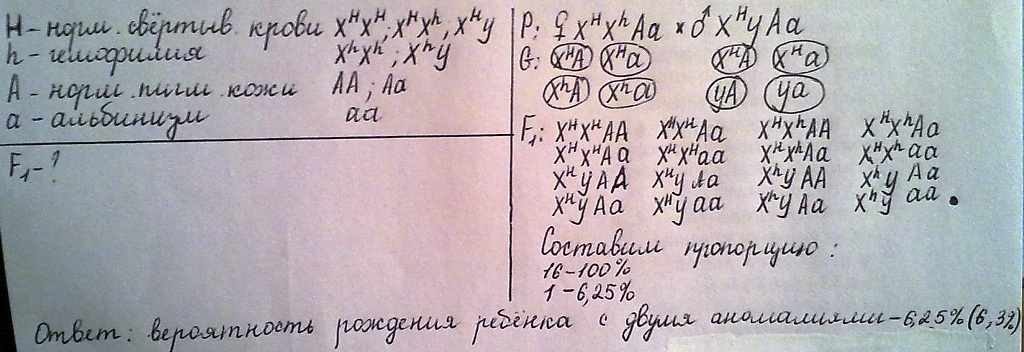 H - норм. свёртыв. крови XᴴXᴴ; XᴴXʰ, Xᴴy
h - гемофилия XʰXʰ; Xʰy
A - норм. пигм. кожи AA; Aa
a - альбинизм aa
F₁ - ?
P: ♀ XᴴXʰAa × ♂ XᴴyAa
G: XᴴA Xᴴa XᴴA Xᴴa
XʰA Xʰa yA ya
F₁: XᴴXᴴAA XᴴXᴴAa XᴴXʰAA XᴴXʰAa
XᴴXᴴAa XᴴXᴴaa XᴴXʰAa XᴴXʰaa
XᴴyAA XᴴyAa XʰyAA XʰyAa
XᴴyAa Xᴴyaa XʰyAa Xʰyaa.
Составим пропорцию:
16 - 100%
1 - 6,25%
Ответ: вероятность рождения ребёнка с двумя аномалиями - 6,25% (6,3%)